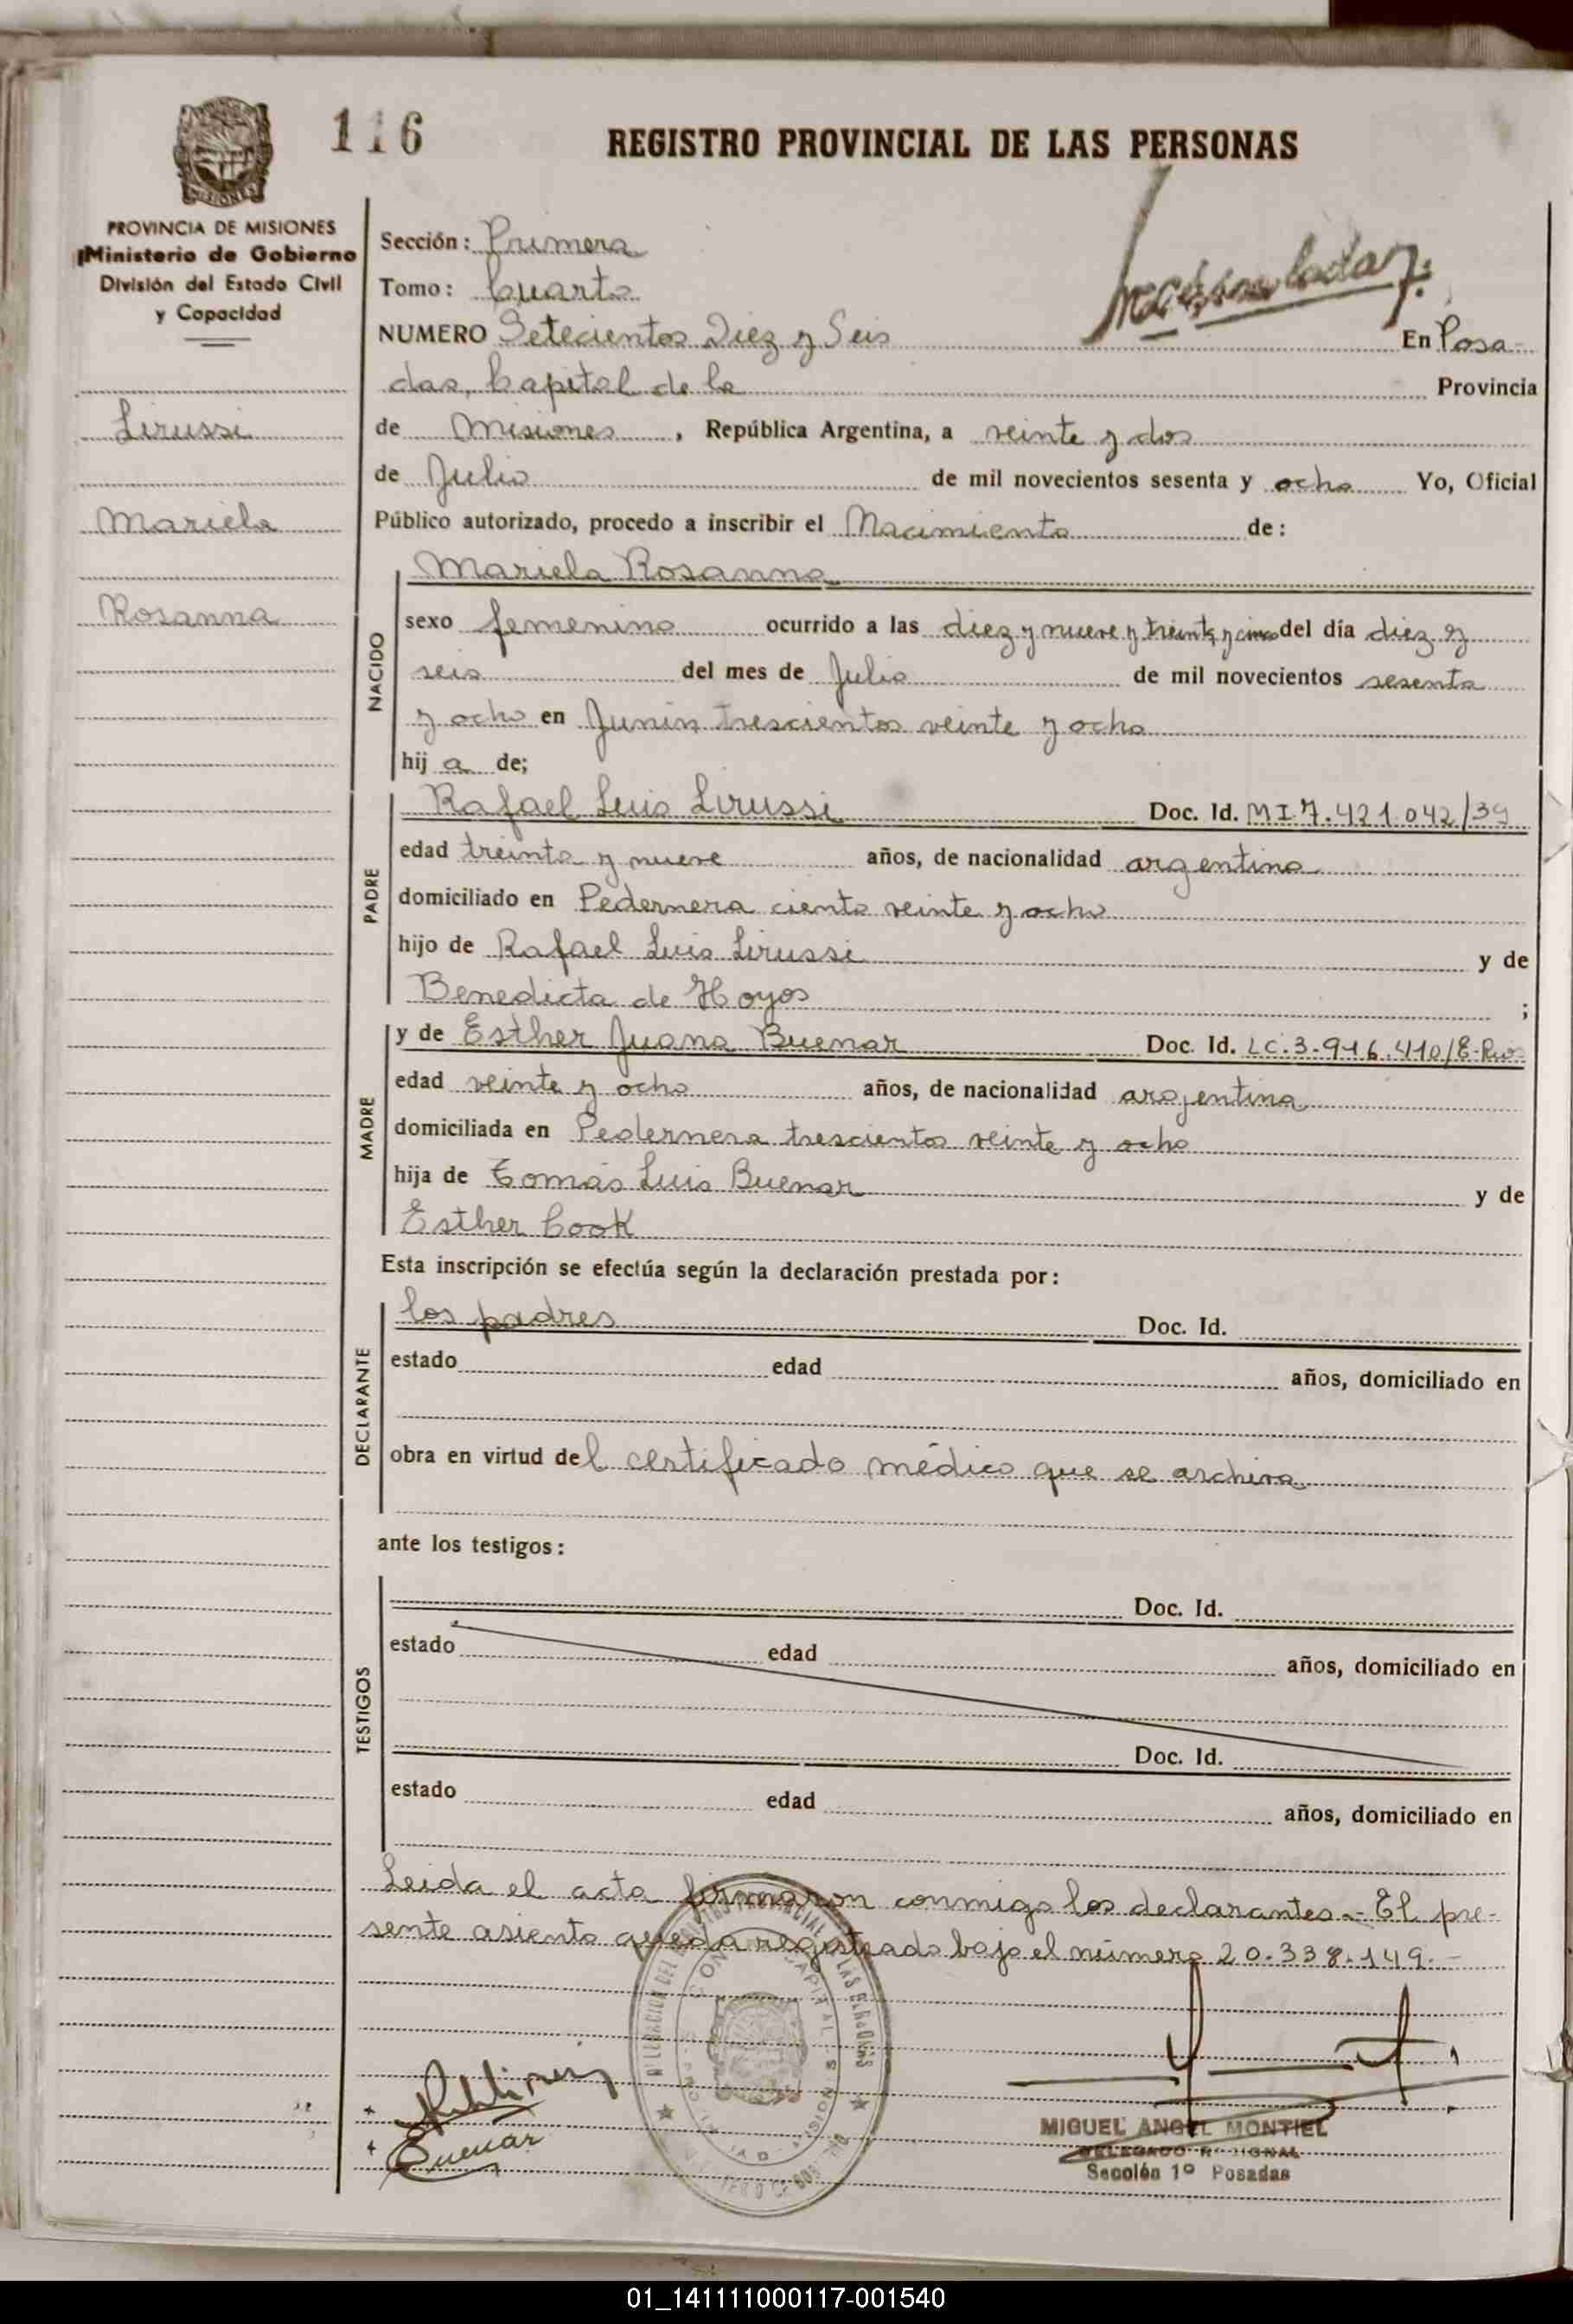 116
REGISTRO PROVINCIAL DE LAS PERSONAS
MISIONES
PROVINCIA DE MISIONES
Ministerio de Gobierno
División del Estado Civil
y Capacidad
Lirussi
Mariela
Rosanna
Sección: Primera
Tomo: Cuarto
NUMERO Setecientos Diez y Seis En Posa-
das, Capital de la Provincia
de Misiones, República Argentina, a veinte y dos
de Julio de mil novecientos sesenta y ocho Yo, Oficial
Público autorizado, procedo a inscribir el Nacimiento de:
Mariela Rosanna
NACIDO
sexo femenino ocurrido a las diez y nueve y treinta y cinco del día diez y
seis del mes de Julio de mil novecientos sesenta
y ocho en Junín trescientos veinte y ocho
hij a de;
PADRE
Rafael Luis Lirussi Doc. Id. M I 7.421.042/39
edad treinta y nueve años, de nacionalidad argentino
domiciliado en Pedernera ciento veinte y ocho
hijo de Rafael Luis Lirussi y de
Benedicta de Hoyos ;
MADRE
y de Esther Juana Buenar Doc. Id. LC.3.916.410/E.Rios
edad veinte y ocho años, de nacionalidad argentina
domiciliada en Pedernera trescientos veinte y ocho
hija de Tomás Luis Buenar y de
Esther Cook
Esta inscripción se efectúa según la declaración prestada por:
DECLARANTE
los padres Doc. Id.
estado edad años, domiciliado en
obra en virtud del certificado médico que se archiva
ante los testigos:
TESTIGOS
Doc. Id.
estado edad años, domiciliado en
Doc. Id.
estado edad años, domiciliado en
Leida el acta firmaron conmigo los declarantes.- El pre-
sente asiento queda registrado bajo el número 20.338.149.-
Buenar
MIGUEL ANGEL MONTIEL
DELEGADO REGIONAL
Sección 1º Posadas
01_141111000117-001540